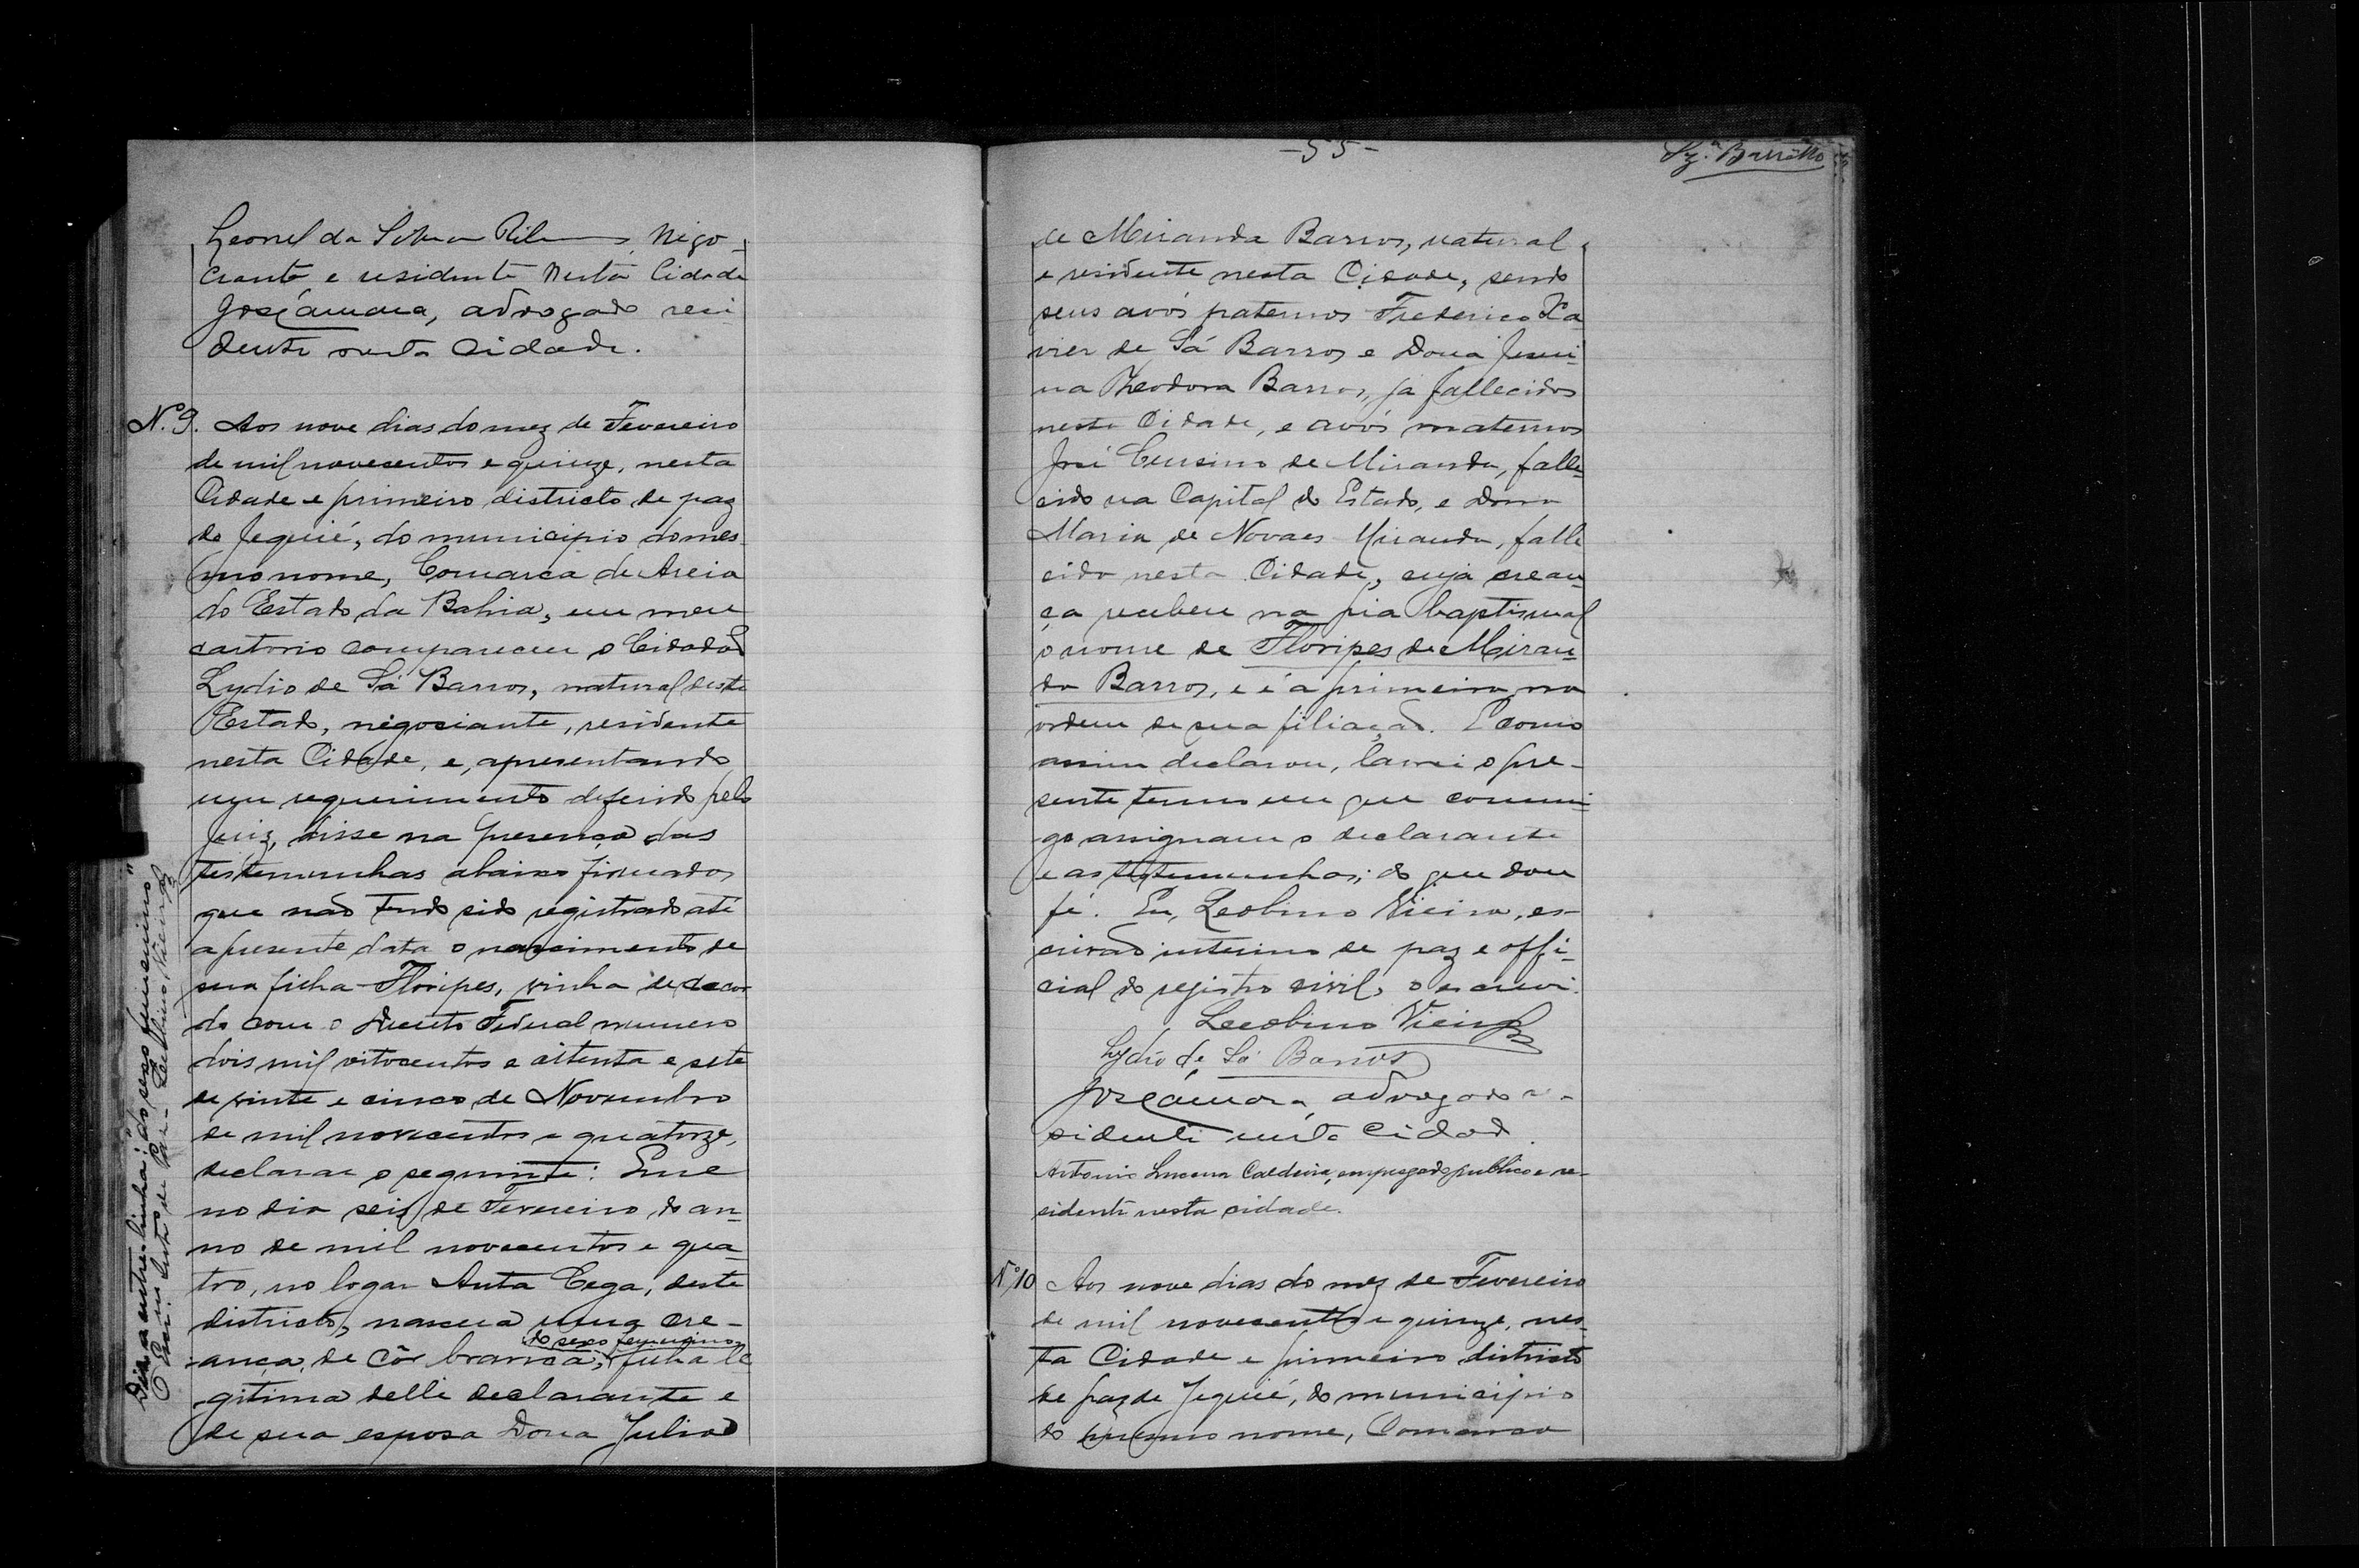 Leonel da Silva Ribeiro, Nego-
ciante e residente nesta Cidade
José Camara, advogado resi-
dente nesta Cidade.
N.º 9. Aos nove dias do mez de Fevereiro
de mil novecentos e quinze, nesta
Cidade e primeiro districto de paz
de Jequié, do municipio do mes-
mo nome, Comarca de Areia
do Estado da Bahia, em meu
cartorio compareceu o Cidadão
Lydio de Sá Barros, natural deste
Estado, negociante, residente
nesta Cidade, e, apresentando
um requerimento deferido pelo
Juiz, disse na presença das
testemunhas abaixo firmados
que não tendo sido registrado até
a presente data o nascimento de
sua filha Floripes, vinha de accor-
do com o Decreto Federal numero
dois mil oitocentos e oitenta e sete
de vinte e cinco de Novembro
de mil novecentos e quatorze,
declarar o seguinte: Que
no dia seis de Fevereiro do an-
no de mil novecentos e qua-
tro, no logar Anta Cega, deste
districto, nasceu uma cre-
ança, de côr branca, do sexo femenino, filha le
gitima delle declarante e
de sua esposa Dona Julia
Diz a entre-linha: "do sexo femenino"
Leobino Vieira
-55-
de Miranda Barros, natural
e residente nesta Cidade, sendo
seus avós paternos Frederico Xa-
vier de Sá Barros e Dona Jesui-
na Theodora Barros, já fallecidos
nesta Cidade, e avós maternos
José Cursino de Miranda, falle-
cido na Capital do Estado, e Dona
Maria de Novaes Miranda, falle
cida nesta Cidade, cuja crean-
ça recebeu na pia baptismal
o nome de Floripes de Miran-
da Barros, e é a primeira na
ordem de sua filiação. E como
assim declarou, lavrei o pre-
sente termo em que commi-
go assignam o declarante
e as testemunhas; do que dou
fé. Eu, Leobino Vieira, es-
crivão interino de paz e offi-
cial do registro civil, o escrevi.
Leobino Vieira
Lydio de Sá Barros
José Camara, advogado re-
sidente nesta Cidade.
Antonio Lucena Caldeira, empregado publico e re-
sidente nesta cidade.
N.º 10 Aos nove dias do mez de Fevereiro
de mil novecentos e quinze, nes-
ta Cidade e primeiro districto
de paz de Jequié, do municipio
do mesmo nome, Comarca